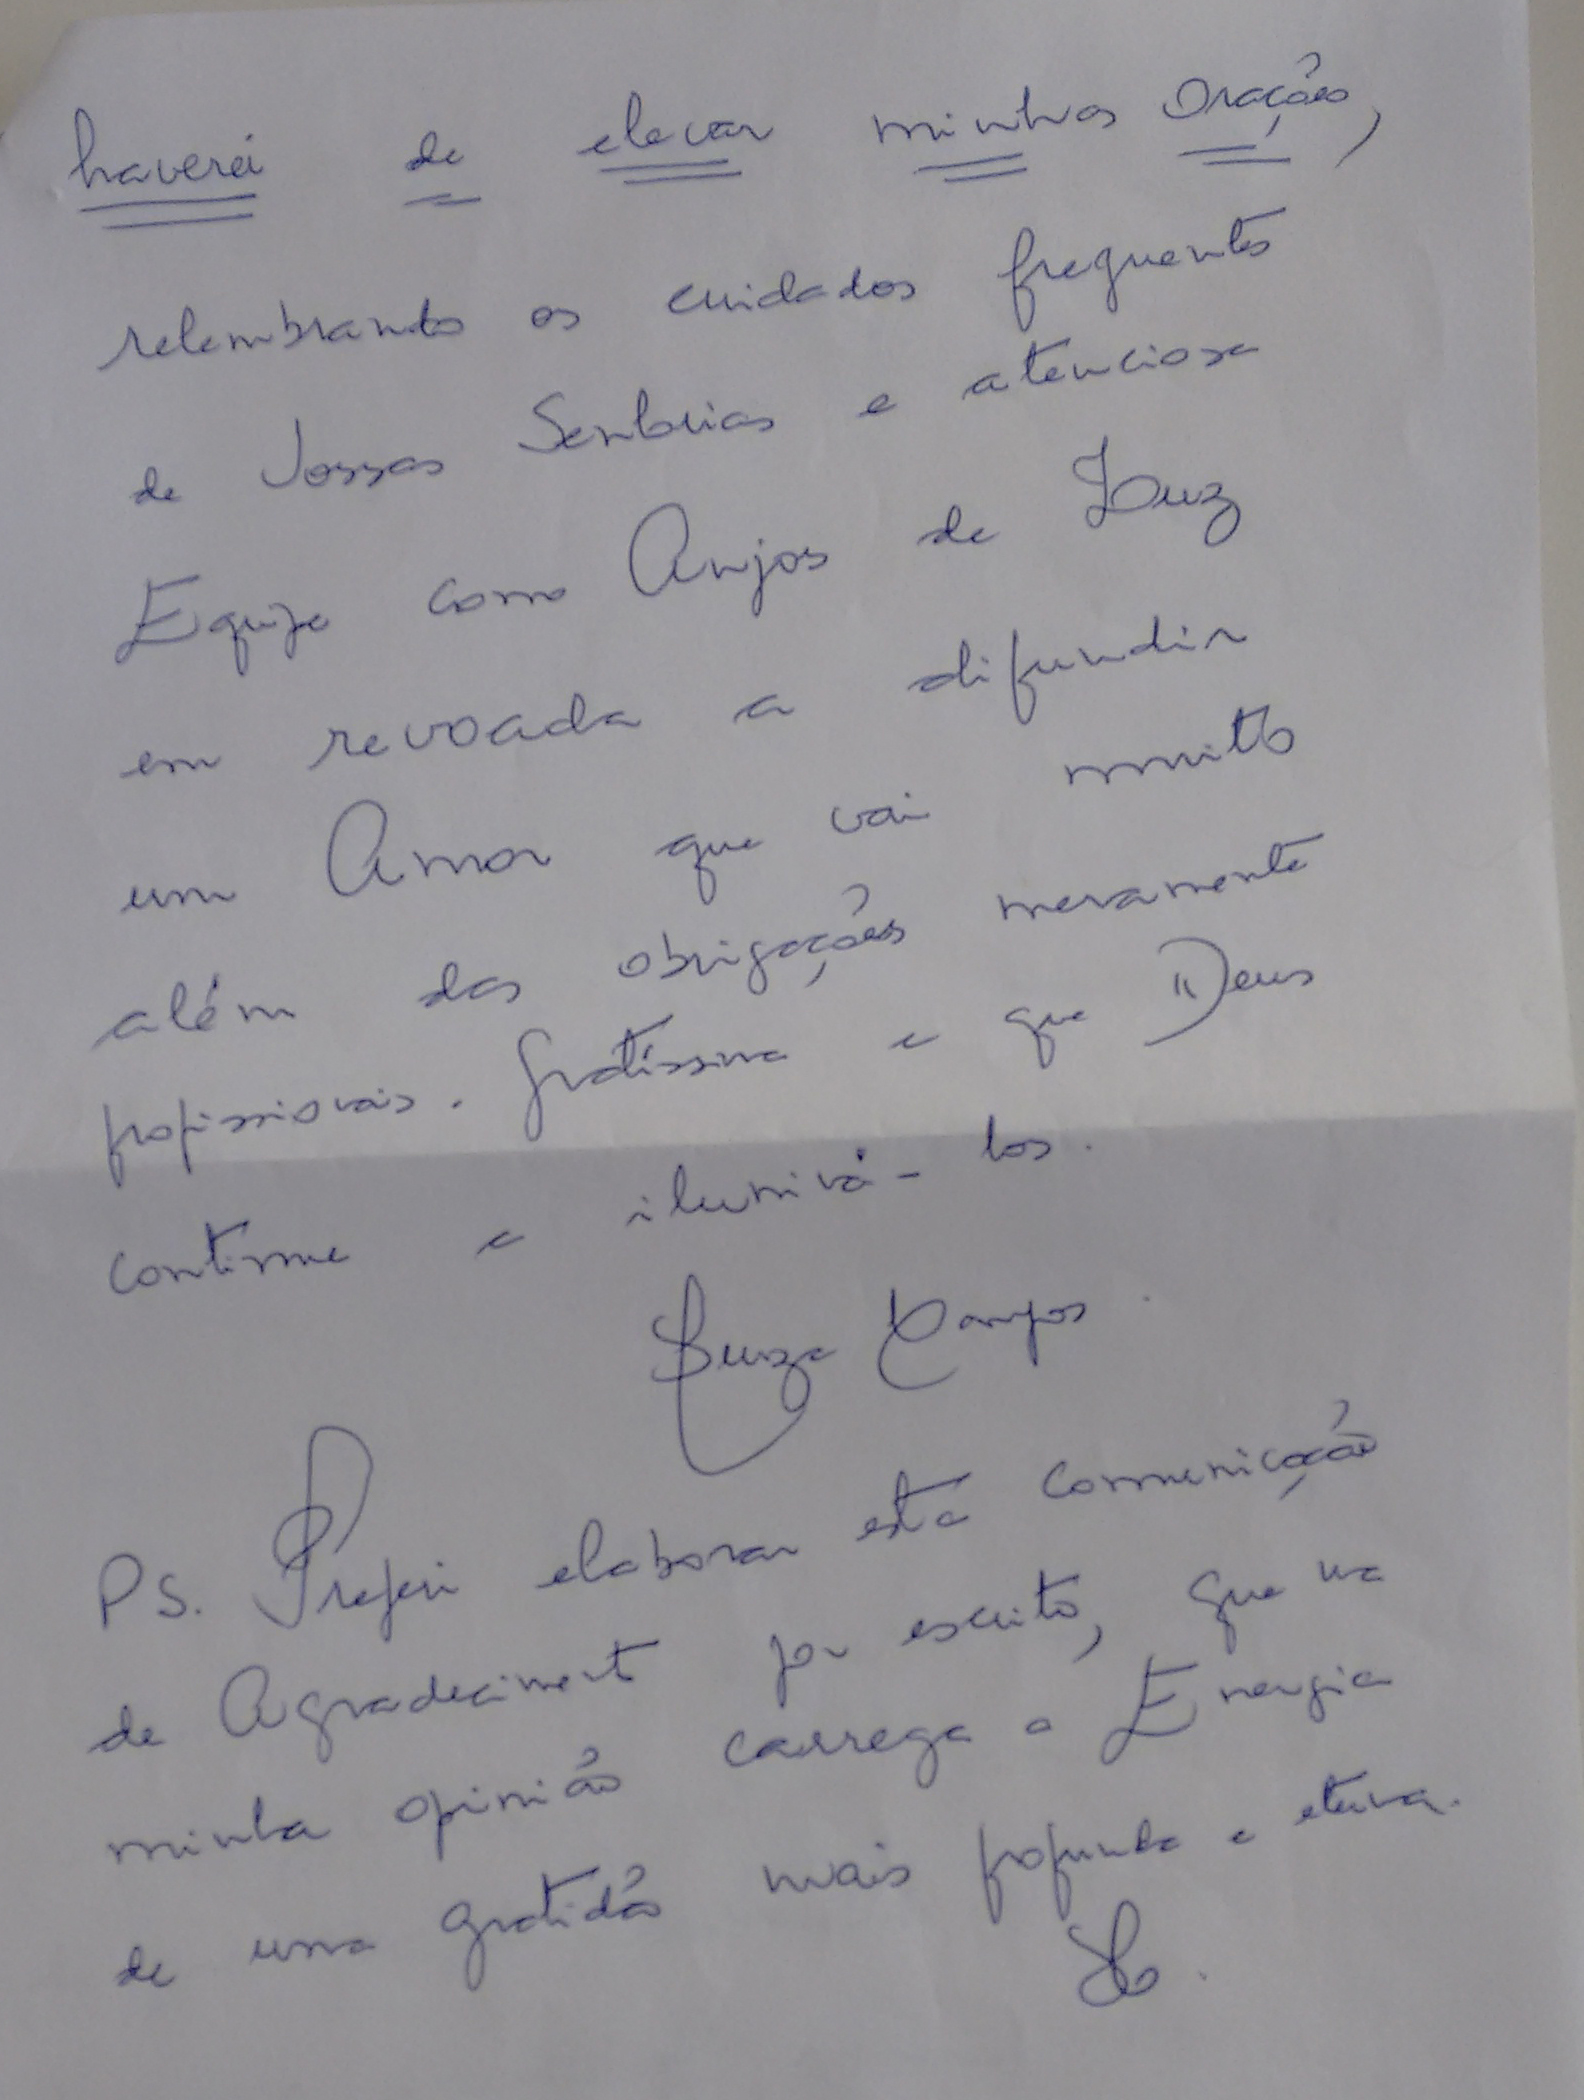 haverei de elevar minhas orações,
relembrando os cuidados frequentes
de Vossas Senhorias e atenciosa
Equipe como Anjos de Luz
em revoada a difundir
um Amor que vai muito
além das obrigações meramente
profissionais. Gratíssima e que Deus
continue a iluminá-los.
Luiza Campos
PS. Preferi elaborar esta comunicação
de Agradecimento por escrito, que na
minha opinião carrega a Energia
de uma gratidão mais profunda e eterna.